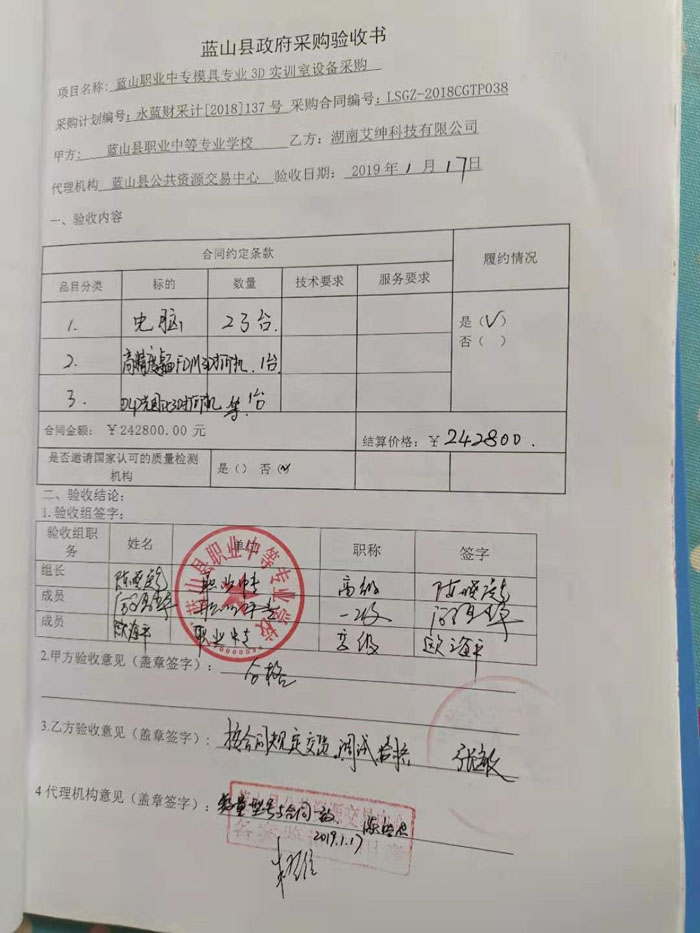 蓝山县政府采购验收书
项目名称：蓝山职业中专模具专业 3D 实训室设备采购
采购计划编号：永蓝财采计[2018]137 号 采购合同编号：LSGZ-2018CGTP038
甲方： 蓝山县职业中等专业学校 乙方：湖南艾绅科技有限公司
代理机构 蓝山县公共资源交易中心 验收日期：2019 年 1 月 17日
一、验收内容
合同约定条款 履约情况
品目分类 标的 数量 技术要求 服务要求
1. 电脑 23台. 是（√）
否（ ）
2. 高精度 FDM3D打印机. 1台
3. DLP 3D打印机 等. 1台
合同金额：￥242800.00 元 结算价格：￥242800.
是否邀请国家认可的质量检测机构 是（） 否（√
二、验收结论：
1.验收组签字：
验收组职务 姓名 单位 职称 签字
组长 职业中专 高级
成员 一级
成员 欧海平 职业中专 高级 欧海平
蓝山县职业中等专业学校
2.甲方验收意见（盖章签字）： 合格
3.乙方验收意见（盖章签字）：按合同规定交货，调试合格 张敏
4 代理机构意见（盖章签字）：数量型号与合同一致.
2019.1.17